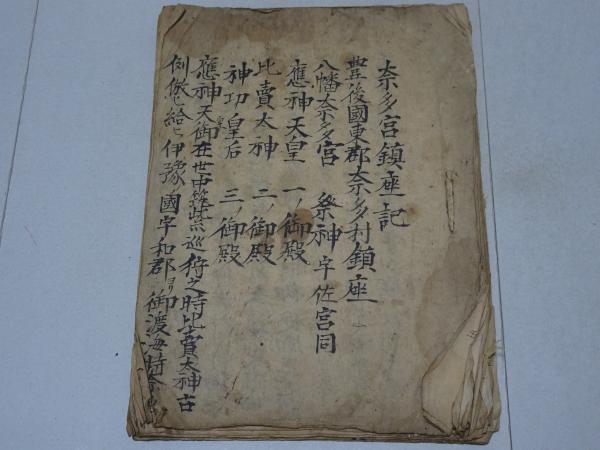 奈多宮鎮座記
豊後國東郡奈多村鎮座
八幡奈多宮 祭神宇佐宮同
應神天皇 一ノ御殿
比賣大神 二ノ御殿
神功皇后 三ノ御殿
應神天皇御在世中筑紫巡狩之時比賣大神古
例ニ給ヒ伊豫ノ國宇和郡ヨリ御渡海